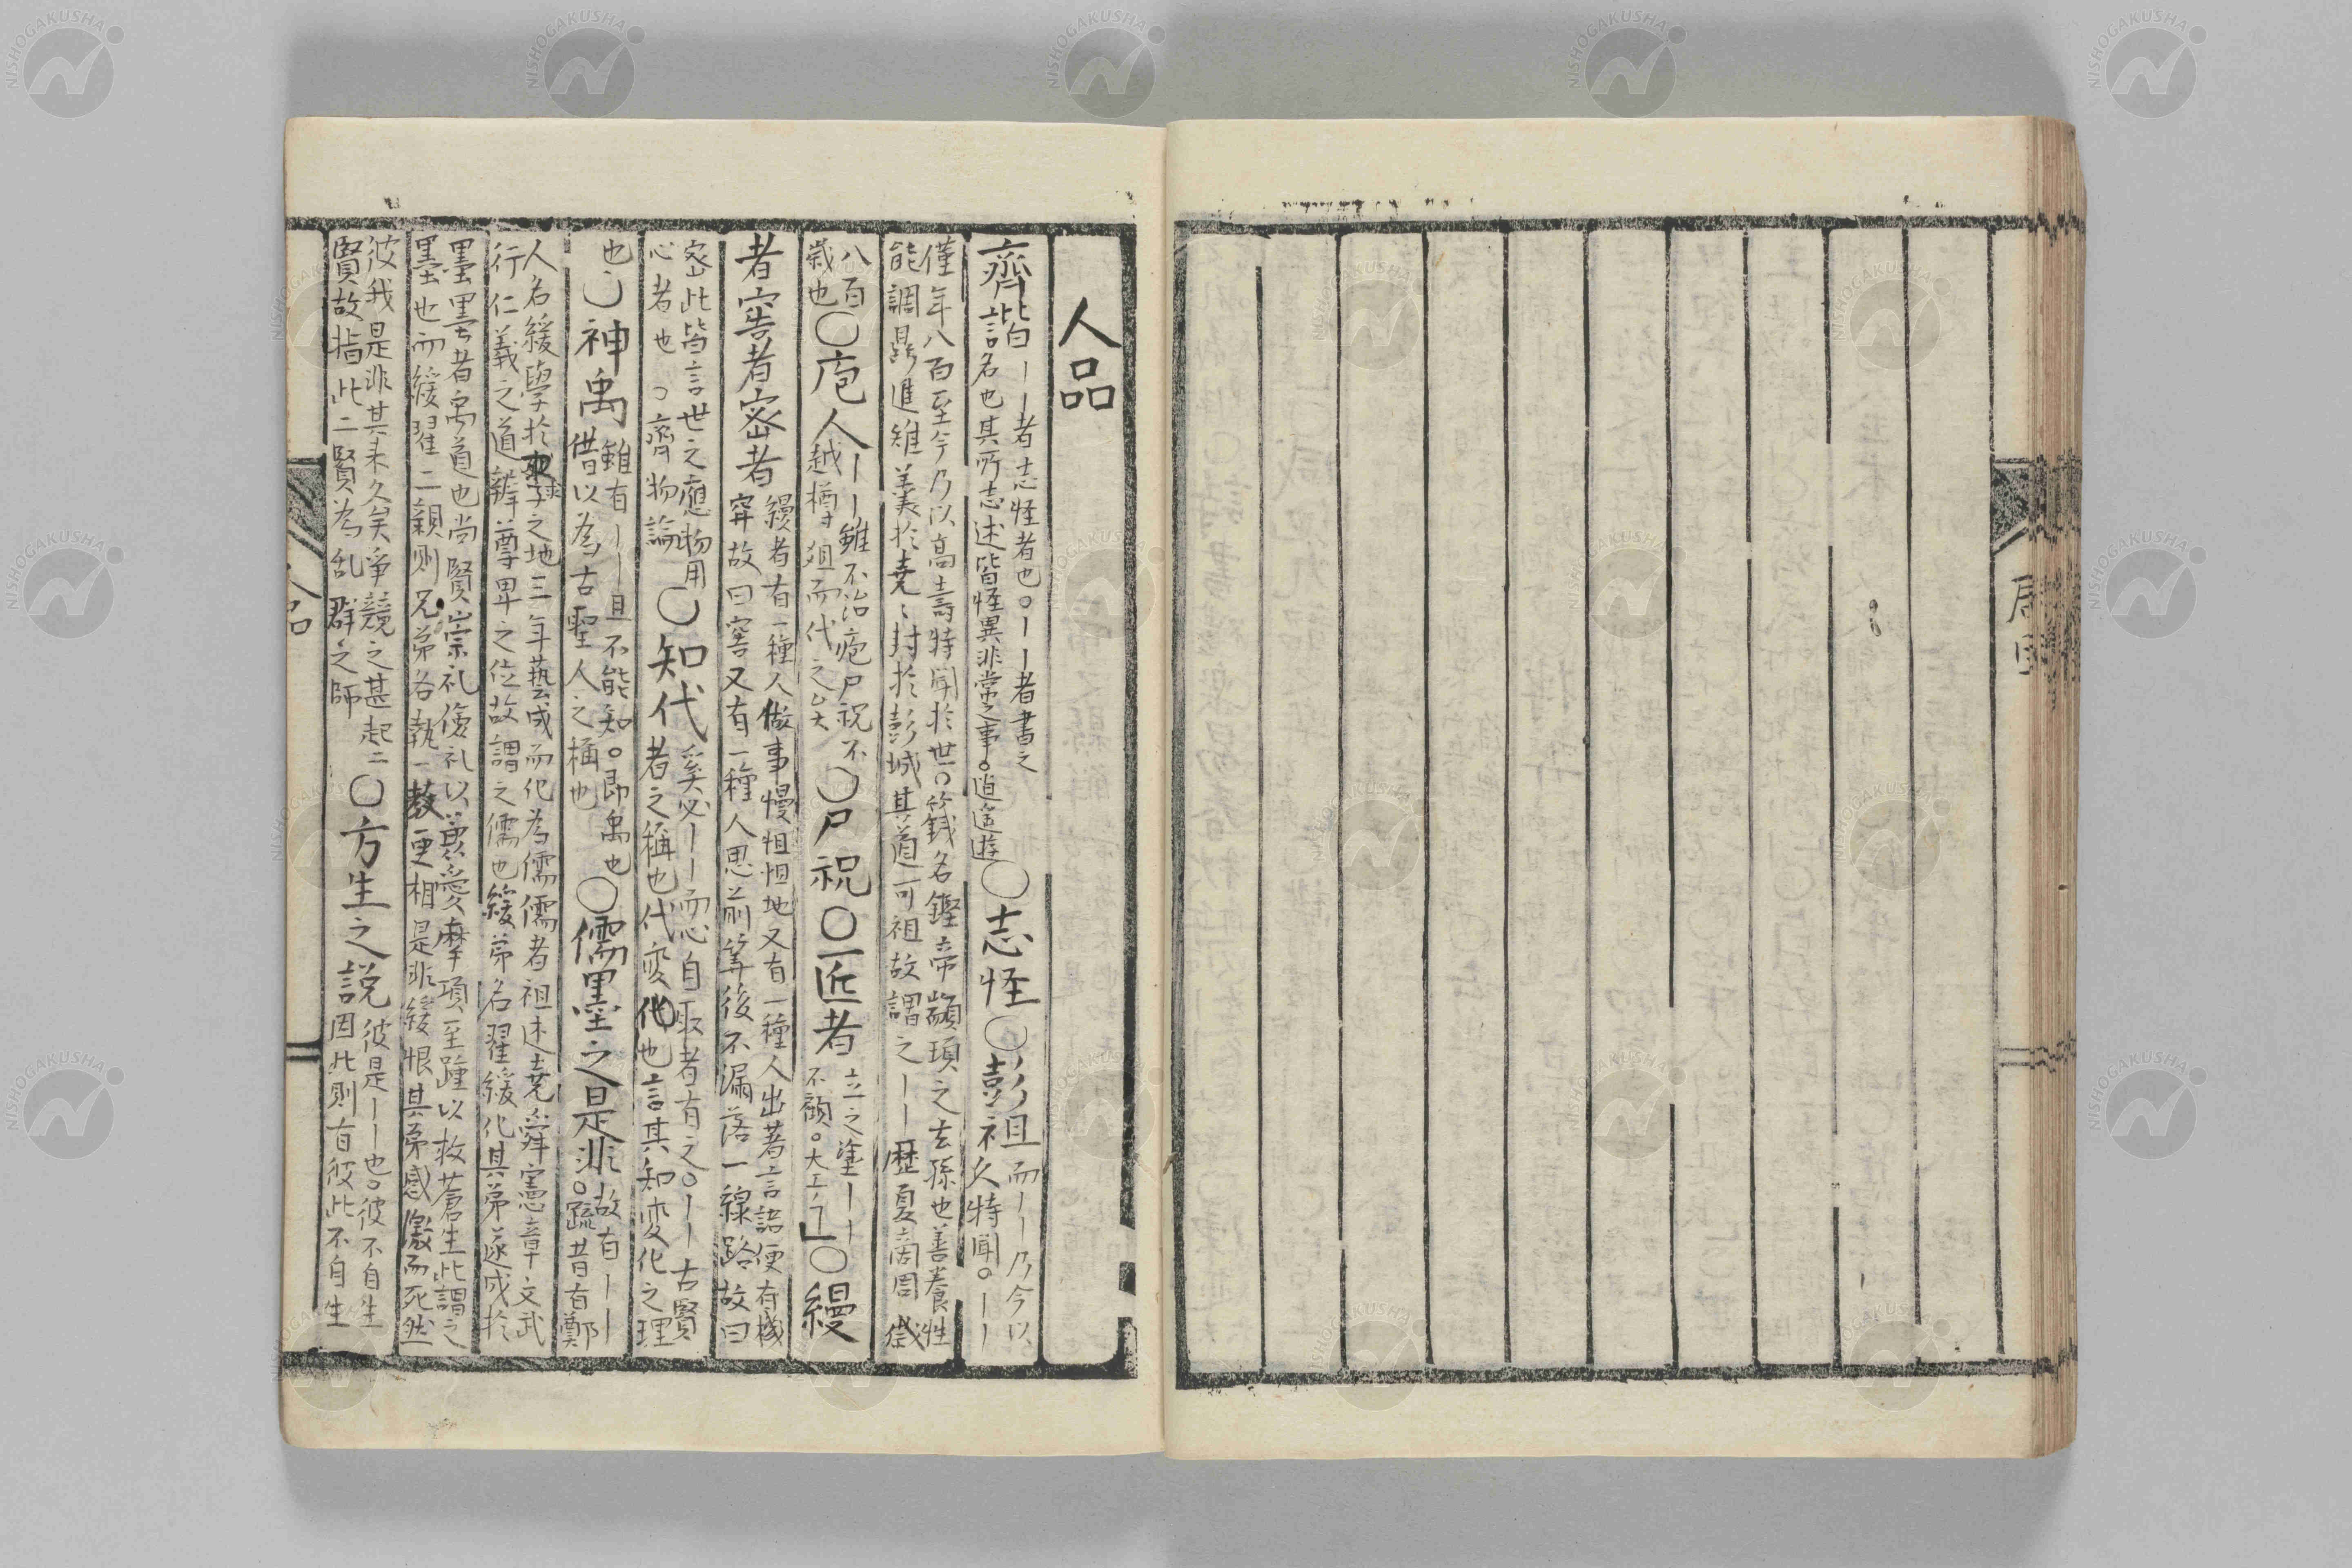 人品
齊諧
ーー者志怪者也。ーー者書之
名也其所志述皆怪異非常之事。逍遙遊
○志怪○彭祖
而ーー乃今以
久特聞。ーー
僅年八百至今乃以高壽特聞於世。籛名鏗帝顓頊之玄孫也善養性
能調鼎進雉羹於堯〻封於彭城其道可祖故謂之ーー歷夏商周歲
八百
歲也
○庖人
ーー雖不治庖尸祝不
越樽俎而代之矣
○尸祝○匠者
立之塗ーー
不顧。大工
○縵
者窖者密者
縵者有一種人做事慢怛怛地又有一種人出著言語便有機
穽故曰窖又有一種人思前筭後不漏落一線路故曰
密此皆言世之應物用
心者也 齊物論
○知代
奚必ーー而心自取者有之。ーー古賢
者之稱也代変化也言其知変化之理
也
○神禹
雖有ーー且不能知。即禹也
借以為古聖人之稱也
○儒墨之是非
故有ーー
。疏昔有鄭
人名緩學於裘之地三年藝成而化為儒儒者祖述堯舜憲章文武
行仁義之道辯尊卑之位故謂之儒也緩弟名翟緩化其弟遂成於
墨墨者禹道也尚賢崇礼儉礼以兼愛摩頂至踵以救蒼生此謂之
墨也而緩翟二親則兄弟各執一教更相是非緩恨其弟感激而死然
彼我是非其来久矣爭競之甚起二
賢故指此二賢為乱群之師
○方生之説
彼是ーー也。彼不自生
因此則有彼此不自生
人品